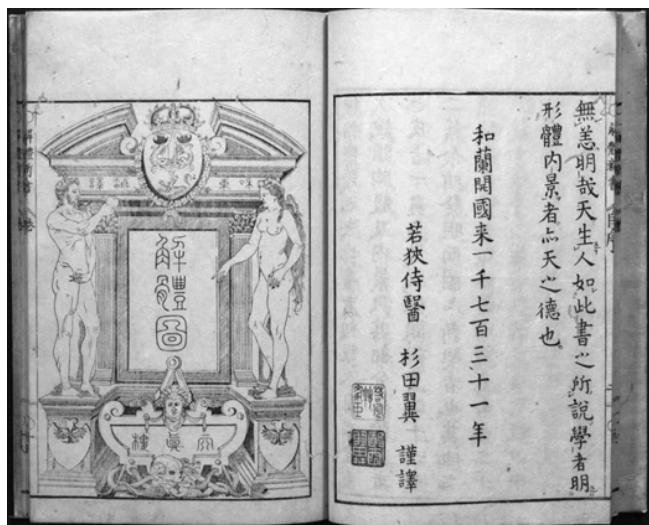 無恙明哉天生人如此書之所說學者明
形體内景者亦天之德也
和蘭開國来一千七百三十一年
若狹侍醫 杉田翼 謹譯
解體圖
天眞樓